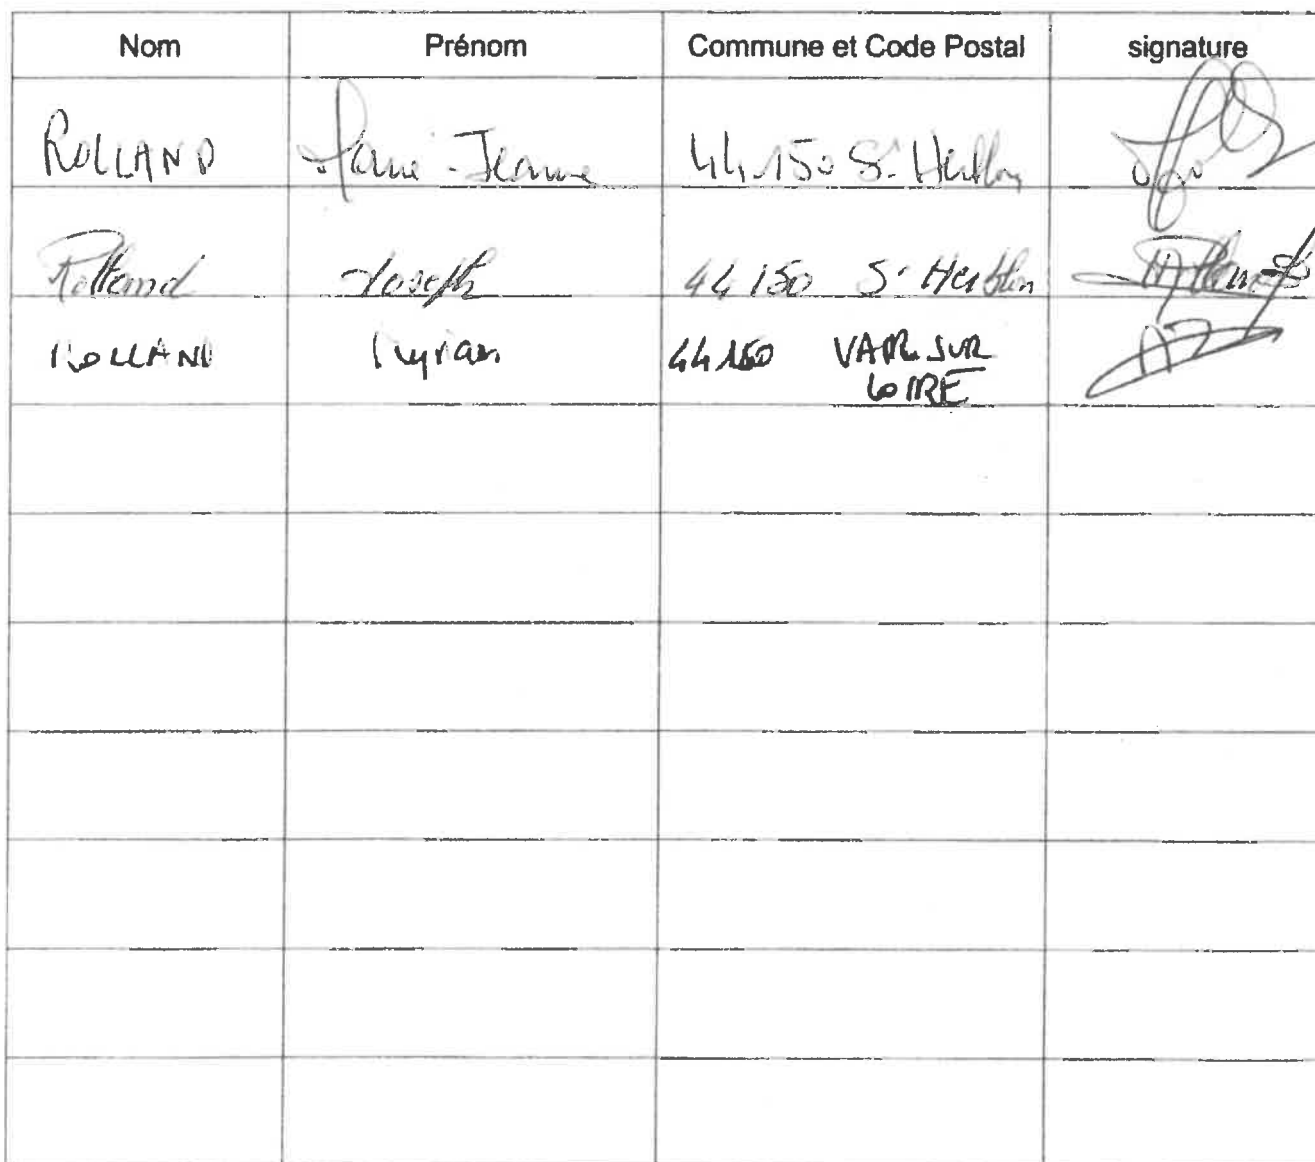 Nom Prénom Commune et Code Postal signature
ROLLAND Marie-Jeanne 44150 St Herblon
Rolland Joseph 44150 St Herblon
ROLLAND 44150 VAIR SUR
LOIRE